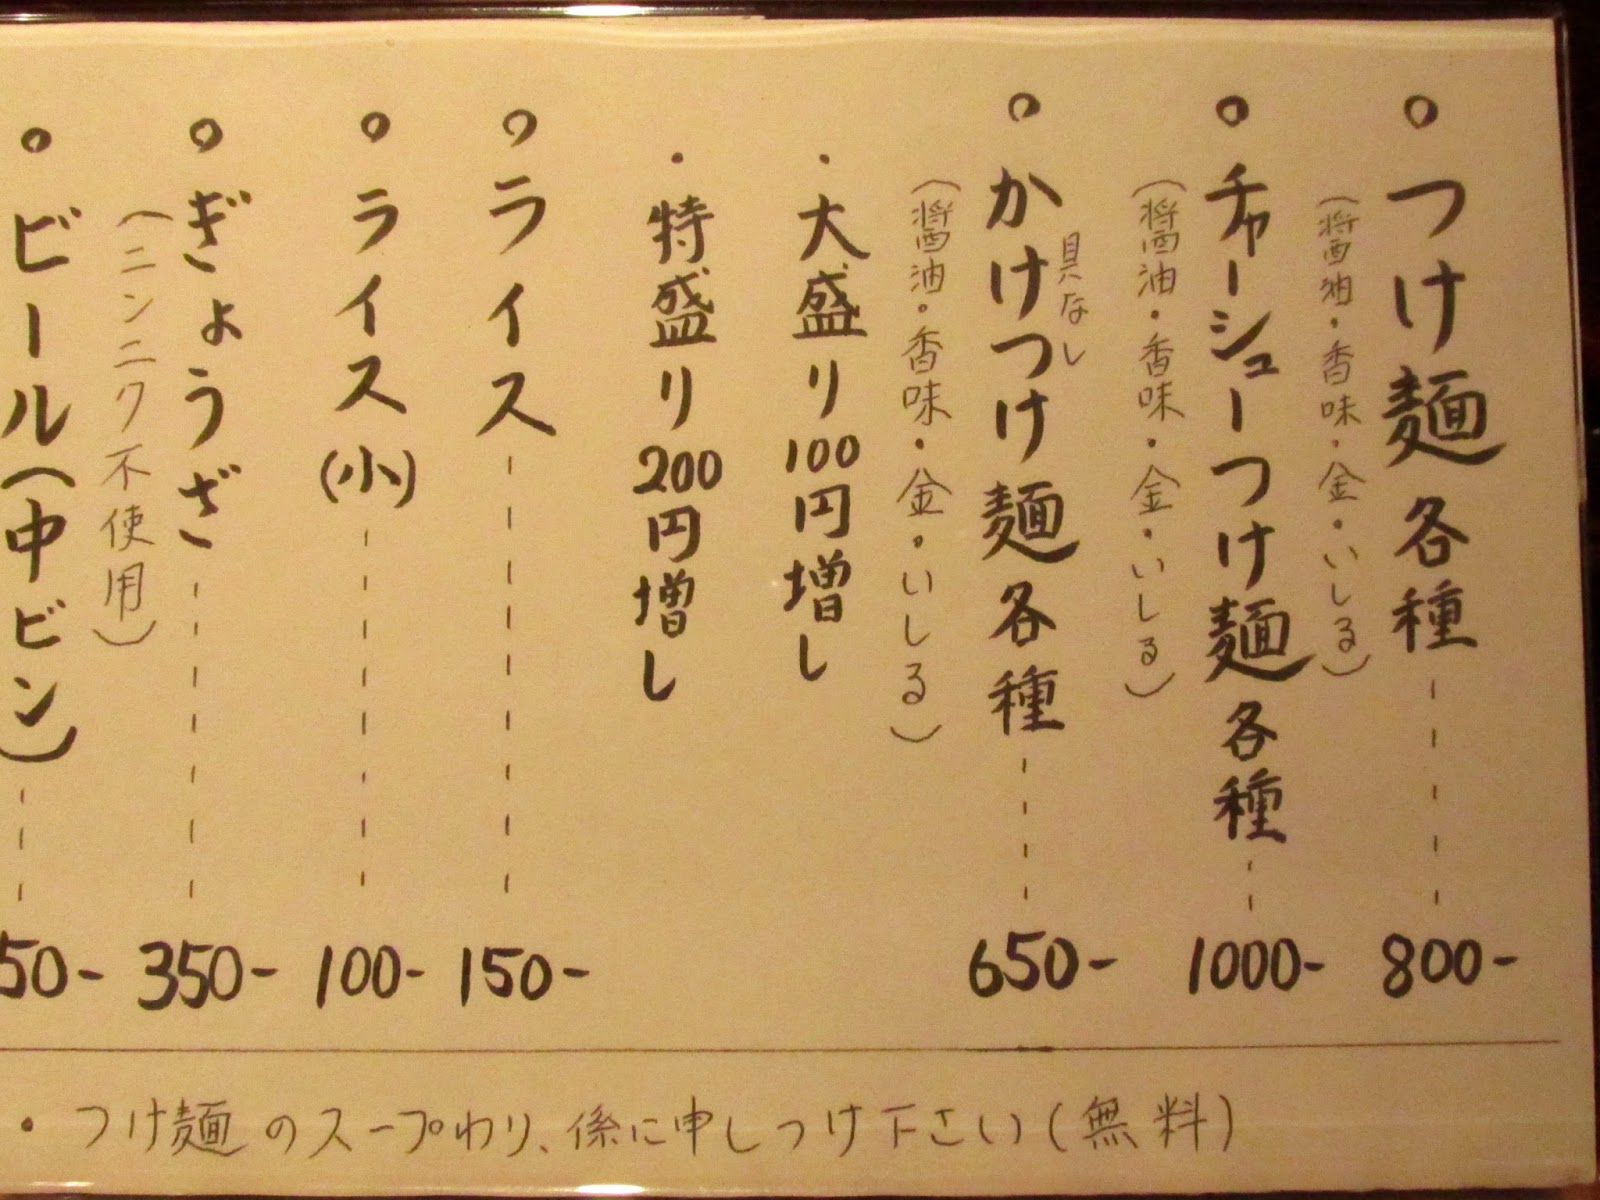 。つけ麺各種 800-
(醤油・香味・金・いしる)
。チャーシューつけ麺各種 1000-
(醤油・香味・金・いしる)
。かけつけ麺各種 650-
具なし
(醤油・香味・金・いしる)
・大盛り100円増し
・特盛り200円増し
。ライス 150-
。ライス(小) 100-
。ぎょうざ 350-
(ニンニク不使用)
。ビール(中ビン) 50-
・つけ麺のスープわり、係に申しつけ下さい(無料)